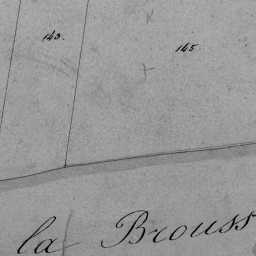 143.
145.
la Brouss